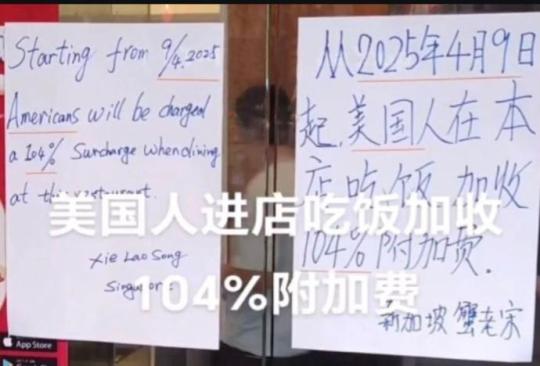 Starting from 9/4.2025
Americans will be charged
a 104% Surcharge when dining
at this restaurant.
Xie Lao Song
Singapore
从2025年4月9日
起,美国人在本
店吃饭 加收
104%附加费.
新加坡 蟹老宋
美国人进店吃饭加收
104%附加费
App Store